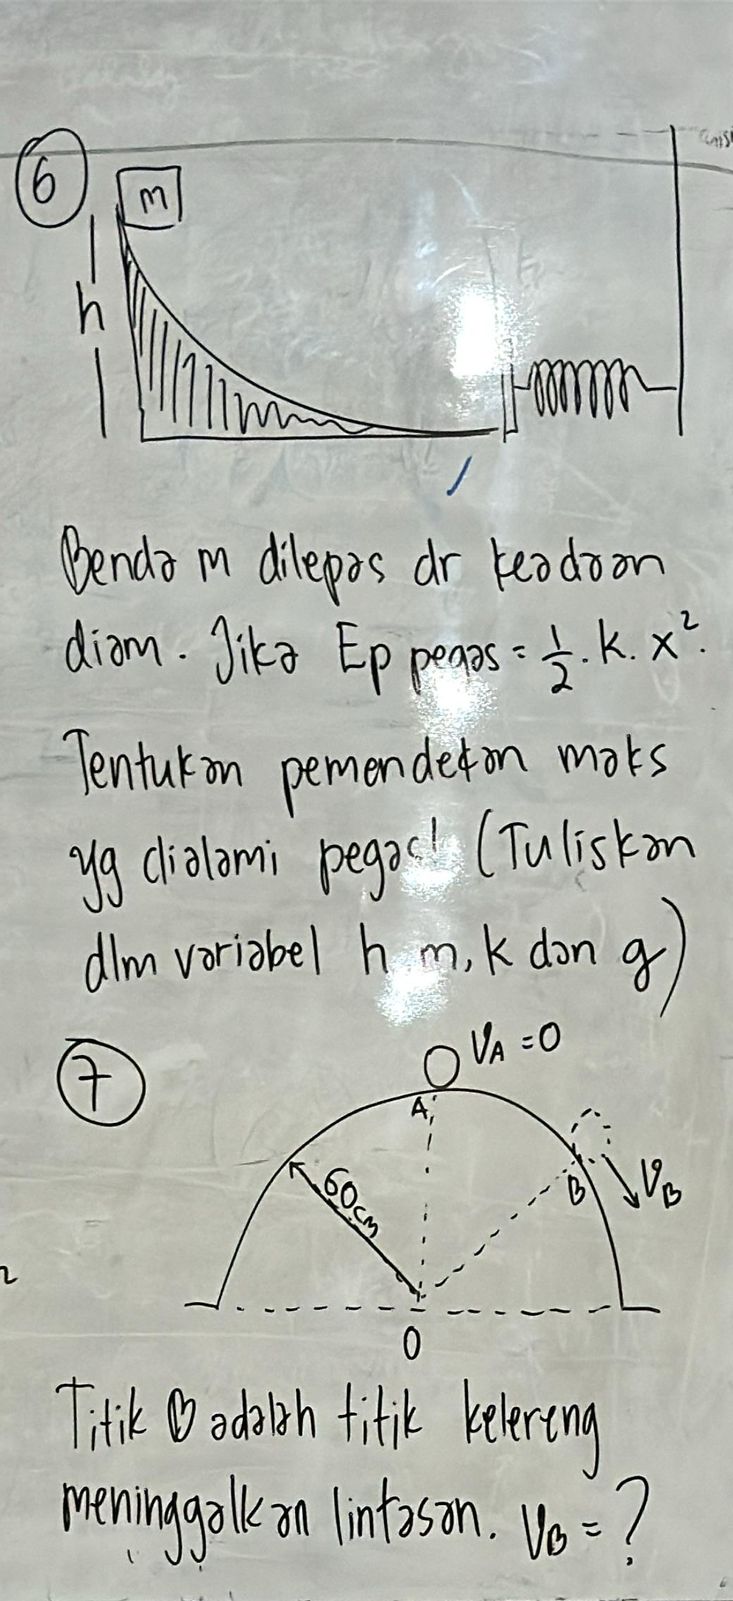 6
m
h
Benda m dilepas dr keadaan
diam. Jika Ep pegas = 1/2 . k. x².
Tentukan pemendekan maks
yg dialami pegas! (Tuliskan
dlm variabel h, m, k dan g)
7
VA = 0
A
60cm
B
VB
O
2
Titik B adalah titik kelereng
meninggalkan lintasan. VB = ?